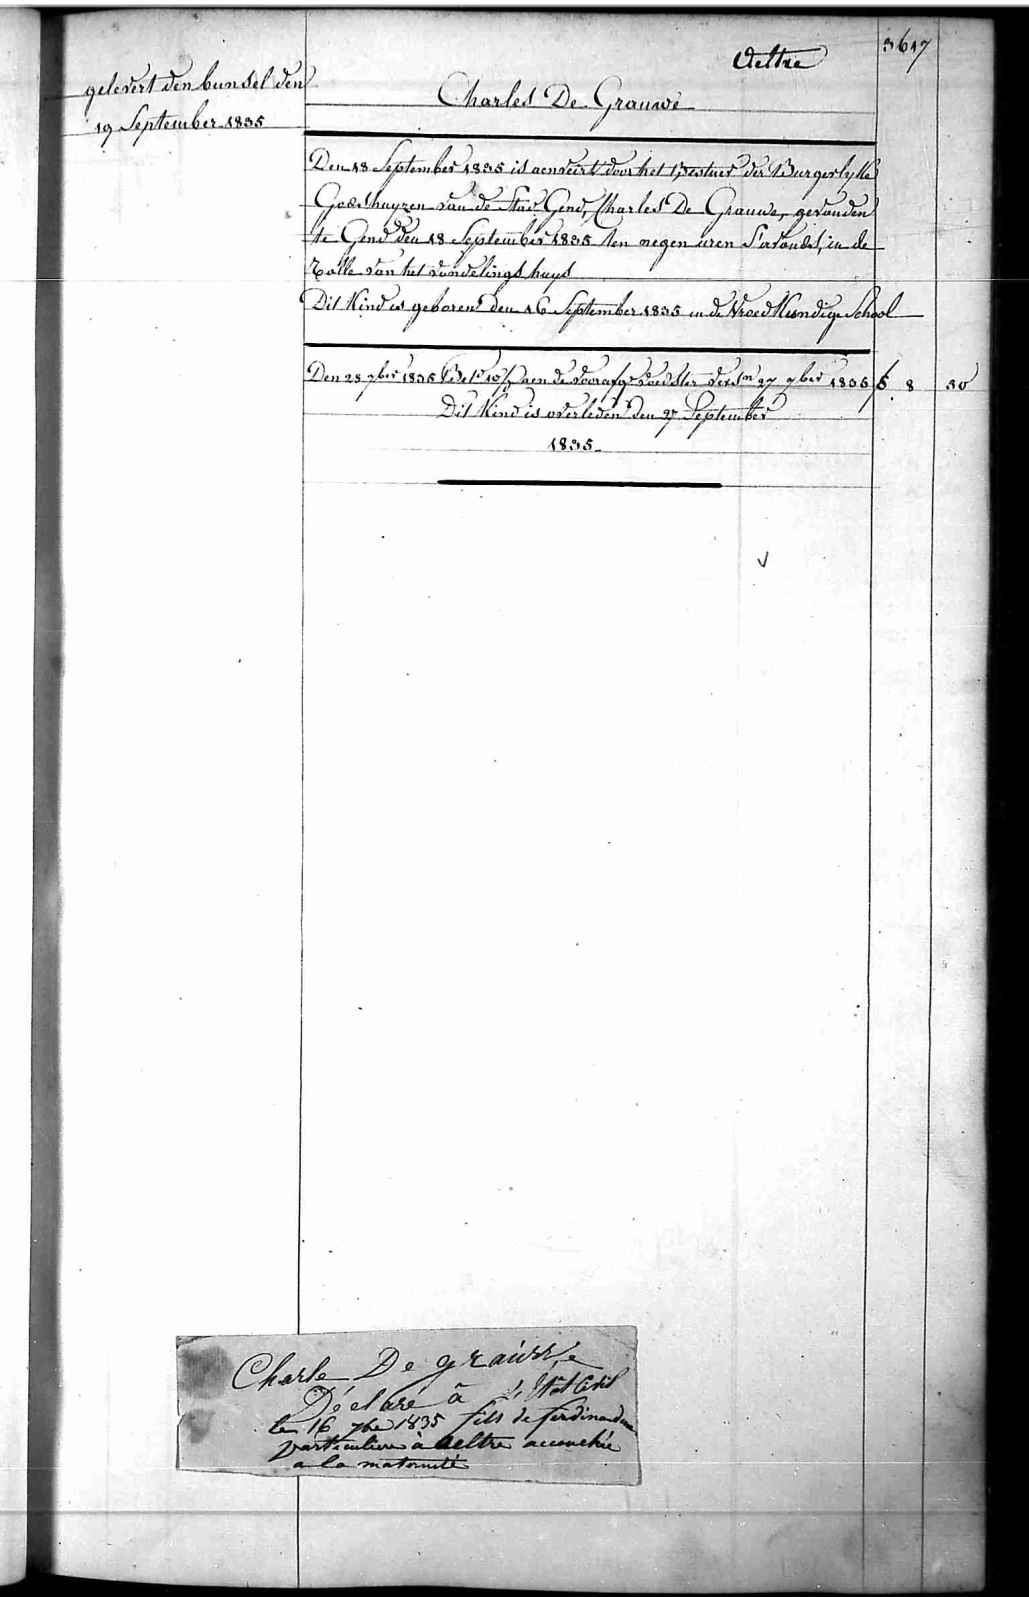 3617
Aeltre
gelevert den bunsel den
19 September 1835
Charles De Grauwe
Den 18 September 1835 is aenveirt door het Bestuer der Burgerlyke
Godshuyzen van de Stad Gend, Charles De Grauwe, gevonden
te Gend den 18 September 1835 ten negen uren S'avonds, in de
Rolle van het vondelingshuys
Dit Kind is geboren den 16 September 1835 in de Vroedkundige School
Den 28 7ber 1835 aen de voedster 27 7ber 1835 8 30
Dit Kind is overleden den 27 September
1835
Charle De grauwe
Déclaré à l'état Civil
le 16 7bre 1835 fils de ferdinandine
particuliere à Aeltre accouchée
a la maternité